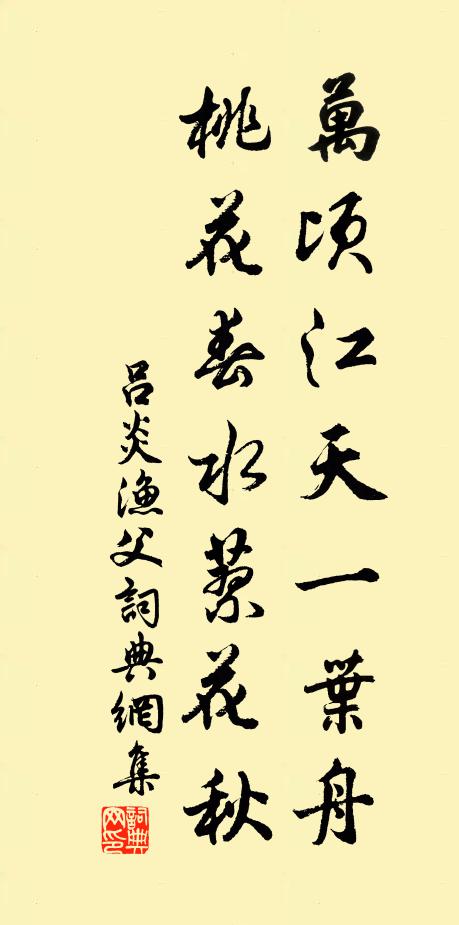 萬頃江天一葉舟
桃花春水蓼花秋
呂炎漁父詞典網集
詞典网印